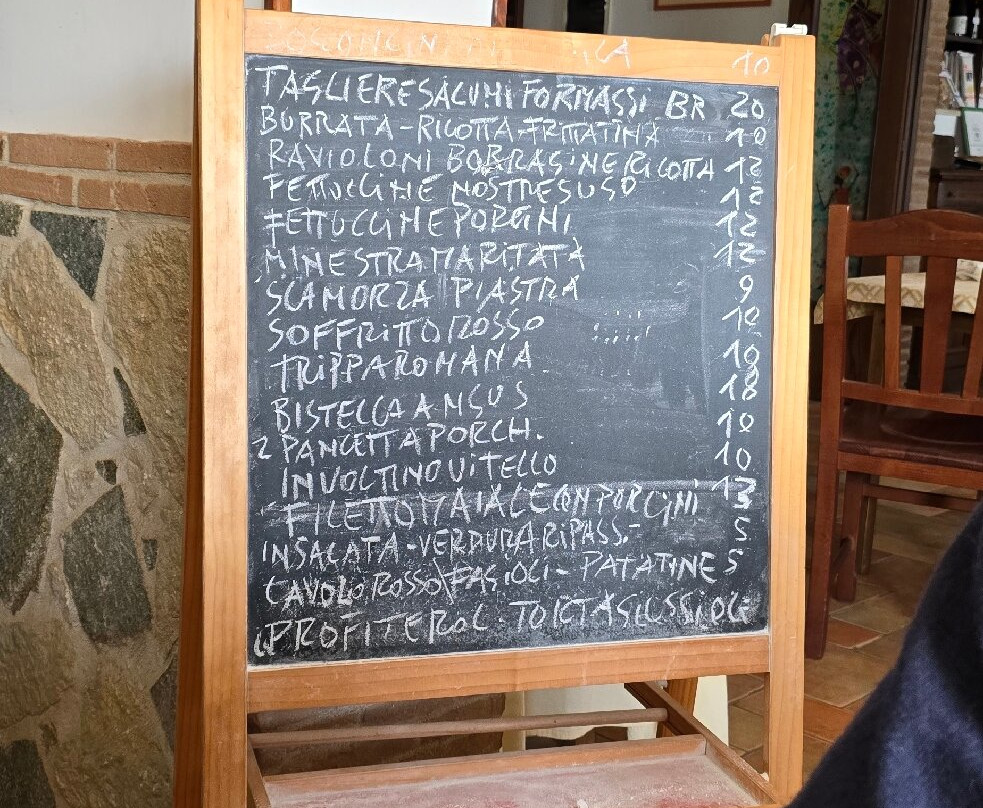 10
TAGLIERE SALUMI FORMASSI BR 20
BURRATA-RICOTTA 10
RAVIOLONI BORRAGINE RICOTTA 12
FETTOCCINE NOSTRE SUSO 12
FETTOCCINE PORCINI 12
MINESTRA MARITATA 12
SCAMORZA PIASTRA 9
SOFFRITTO ROSSO 10
TRIPPA ROMANA 10
BISTECCA ANGUS 18
PANCETTA PORCH. 10
INVOLTINO VITELLO 10
FILETTO MAIALE CON PORCINI 13
INSALATA-VERDURA RIPASS- 5
CAVOLO ROSSO\FAGIOLI- PATATINE 5
PROFITEROL. TORTA